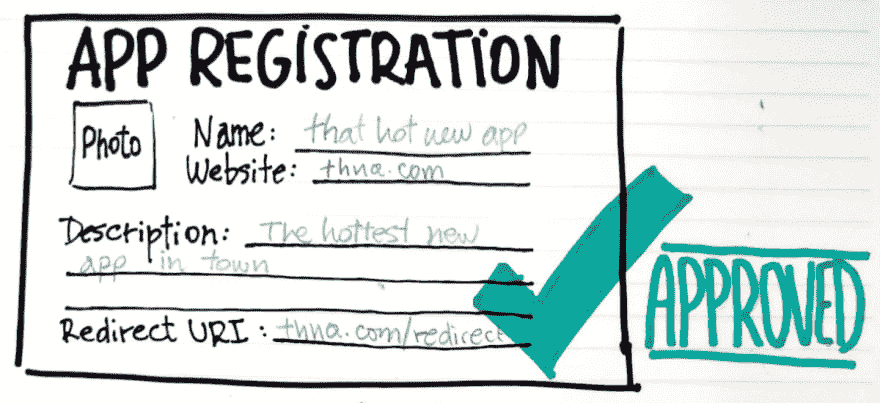 APP REGISTRATION
Photo
Name: that hot new app
Website: thna.com
Description: The hottest new
app in town
Redirect URI: thna.com/redirect
APPROVED